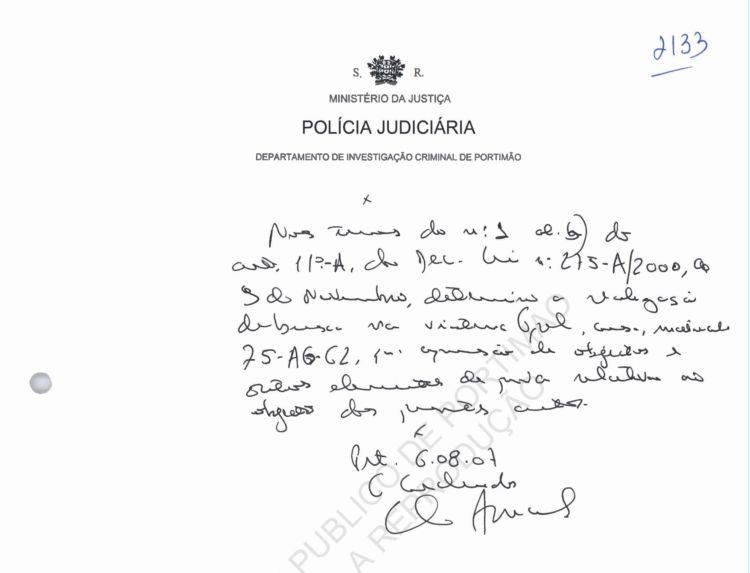 2133
S. R.
MINISTÉRIO DA JUSTIÇA
POLÍCIA JUDICIÁRIA
DEPARTAMENTO DE INVESTIGAÇÃO CRIMINAL DE PORTIMÃO
x
Nos termos do n.º 1 al. b) do
art. 11º-A, do Dec. Lei nº 275-A/2000, de
9 de Novembro, determino a realização
de busca na viatura Opel, matrícula
75-AG-62, apreensão de objectos e
outros elementos de prova relativos ao
objecto dos autos.
Ptt. 6.08.07
O Coordenador
Amaral
PUBLICO DE PORTIMÃO
A REPRODUÇÃO